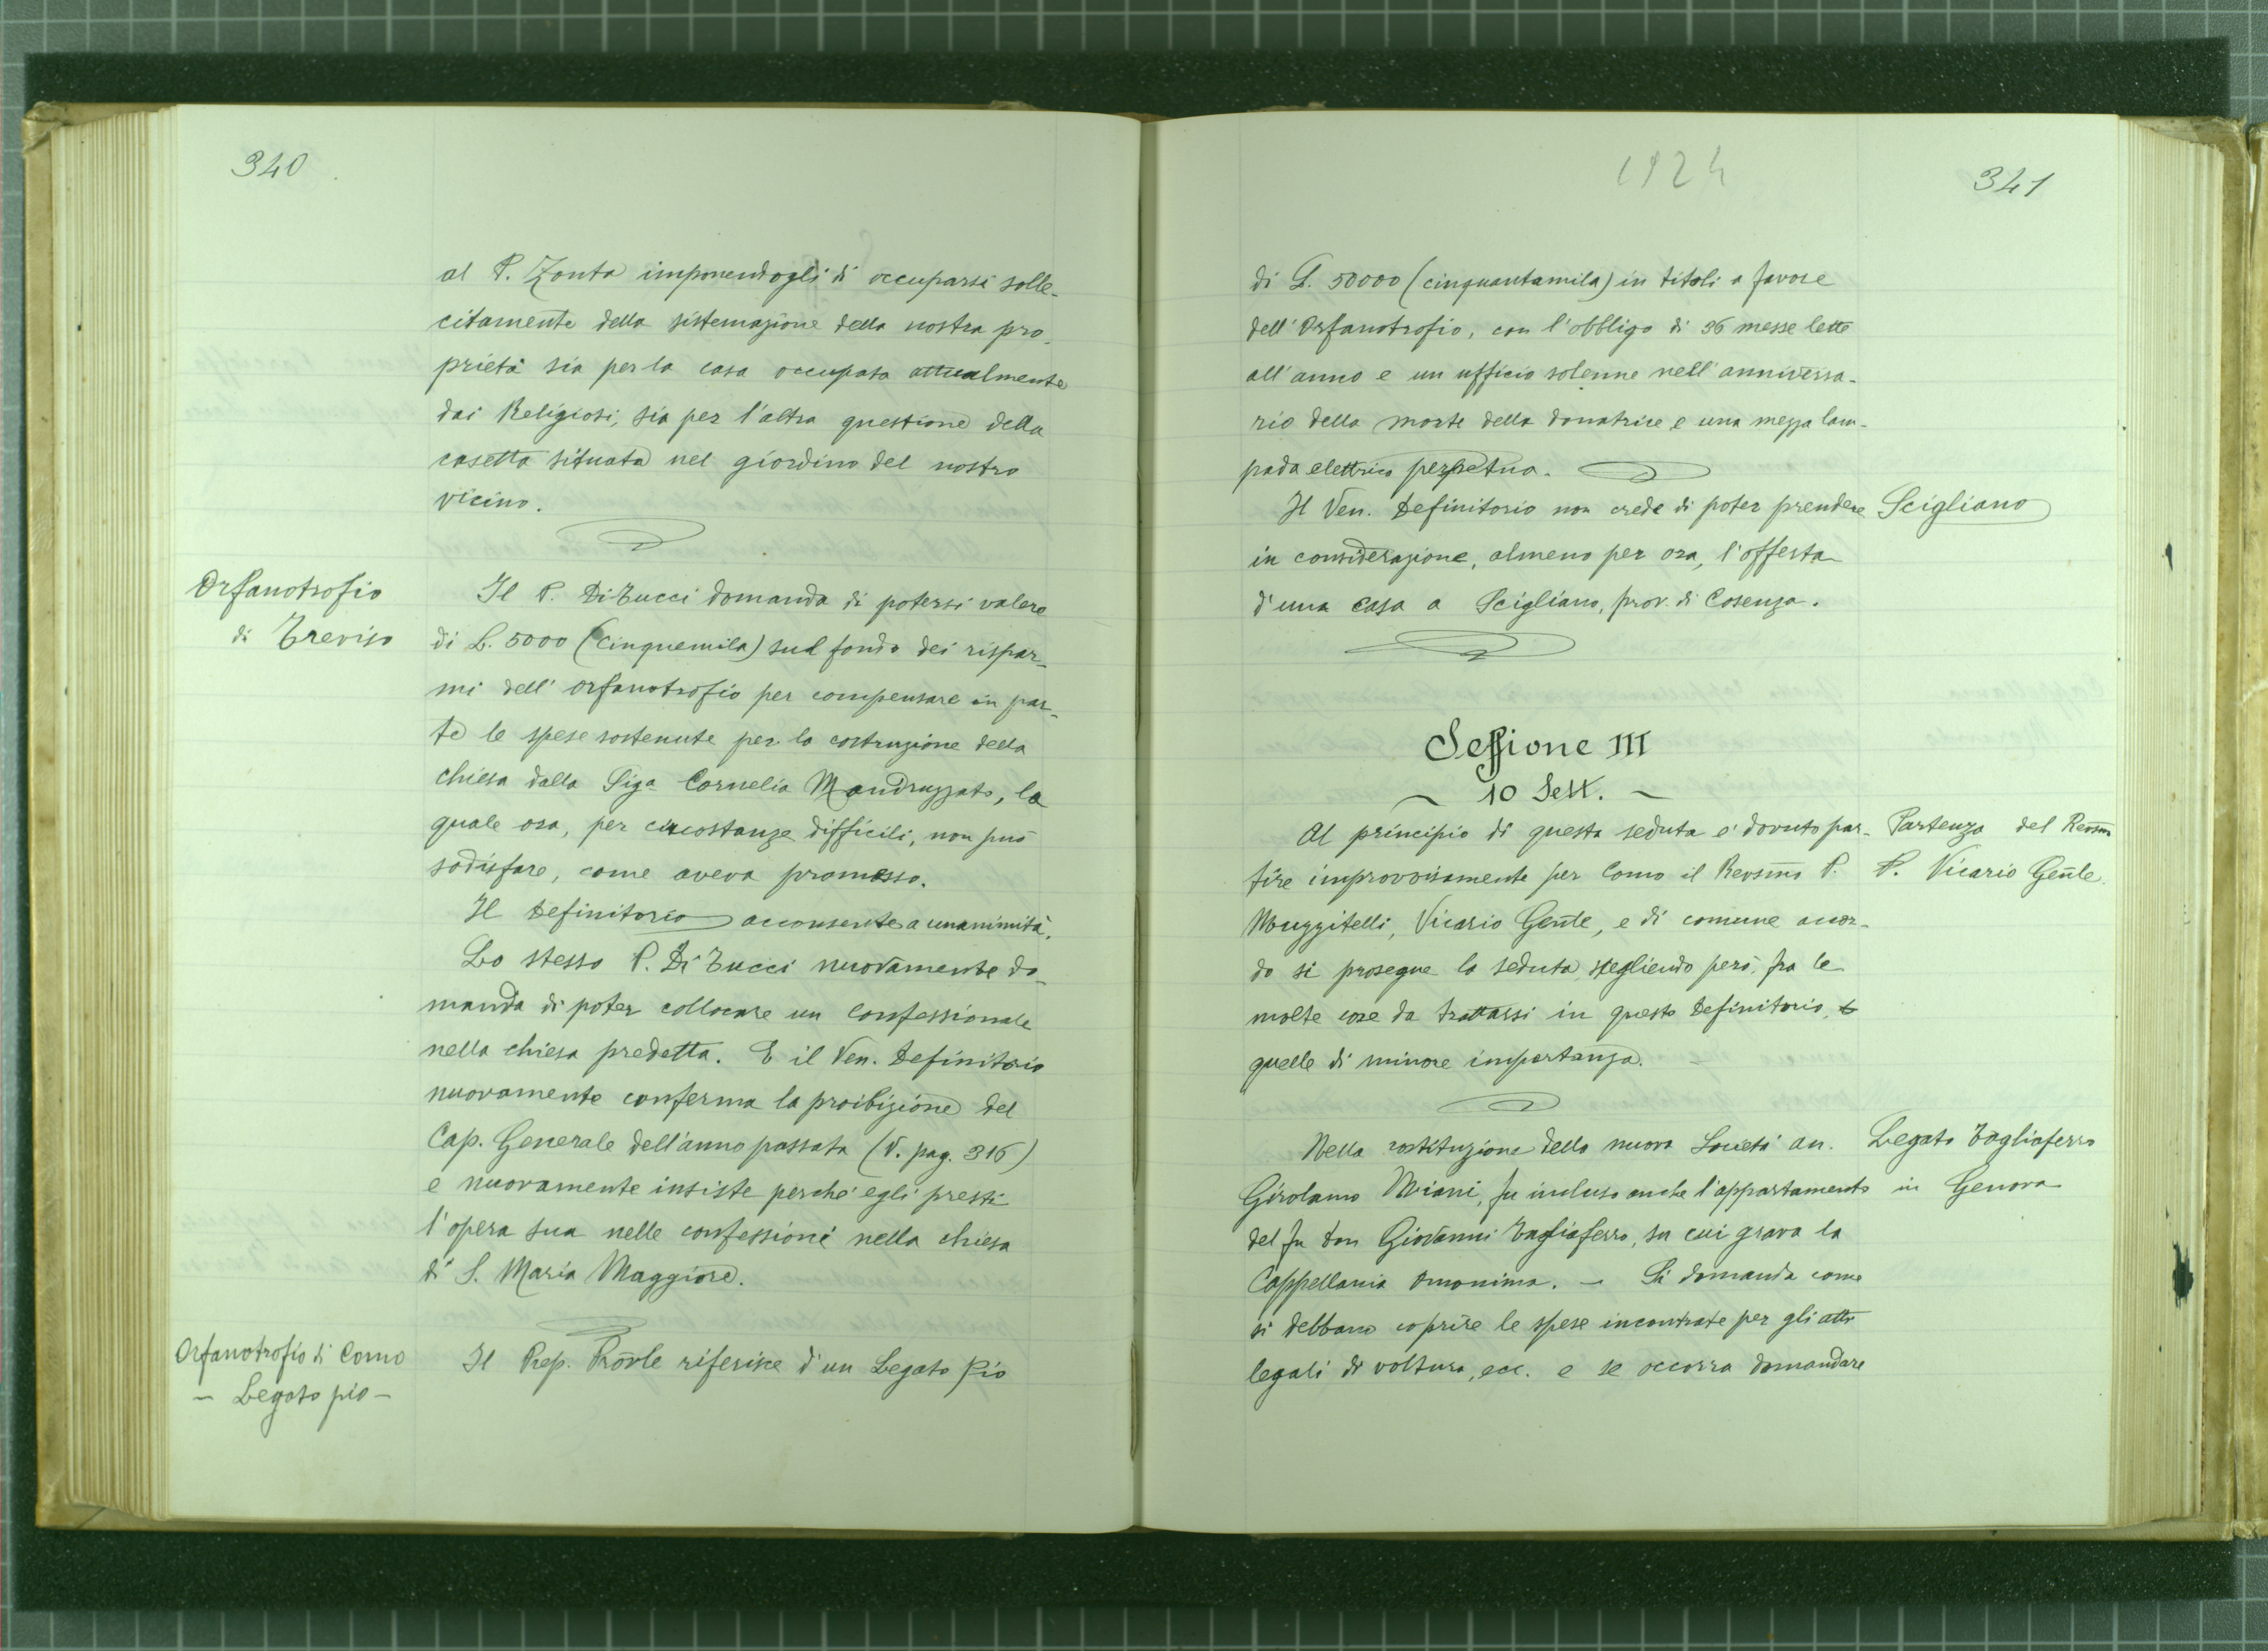 340
al P. Zonta imponendogli di occuparsi solle-
citamente della sistemazione della nostra pro-
prietà sia per la casa occupata attualmente
dai Religiosi, sia per l'altra questione della
casetta situata nel giardino del nostro
vicino.
Orfanotrofio
di Treviso
Il P. Di Tucci domanda di potersi valere
di L. 5000 (cinquemila) sul fondo dei rispar-
mi dell' orfanotrofio per compensare in par-
te le spese sostenute per la costruzione della
chiesa dalla Sig.a Cornelia Mandruzzato, la
quale ora, per circostanze difficili, non può
sodisfare, come aveva promesso.
Il Definitorio acconsente a unanimità.
Lo stesso P. Di Tucci nuovamente do-
manda di poter collocare un confessionale
nella chiesa predetta. E il Ven. Definitorio
nuovamente conferma la proibizione del
Cap. Generale dell'anno passato (V. pag. 316)
e nuovamente insiste perché egli presti
l'opera sua nelle confessioni nella chiesa
di S. Maria Maggiore.
Orfanotrofio di Como
- Legato pio -
Il Prep. Prov̄le riferisce d'un Legato pio
1924
341
di L. 50000 (cinquantamila) in titoli a favore
dell' Orfanotrofio, con l'obbligo di 36 messe lette
all'anno e un ufficio solenne nell'anniversa-
rio della morte della donatrice e una mezza lam-
pada elettrica perpetua.
Il Ven. Definitorio non crede di poter prendere
in considerazione, almeno per ora, l'offerta
d'una casa a Scigliano, prov. di Cosenza.
Scigliano
Sessione III
~ 10 Sett. ~
Al principio di questa seduta e' dovuto par-
tire improvvisamente per Como il Revsm̄o P.
Muzzitelli, Vicario Gen̄le, e di comune accor-
do si prosegue la seduta, scegliendo però, fra le
molte cose da trattarsi in questo Definitorio,
quelle di minore importanza.
Partenza del Revsm̄o
P. Vicario Gen̄le.
Nella costituzione della nuova Società an.
Girolamo Miani, fu incluso anche l'appartamento
del fu Don Giovanni Tagliaferro, su cui grava la
Cappellania omonima. - Si domanda come
si debbano coprire le spese incontrate per gli atti
legali di voltura, ecc. e se occorra domandare
Legato Tagliaferro
in Genova